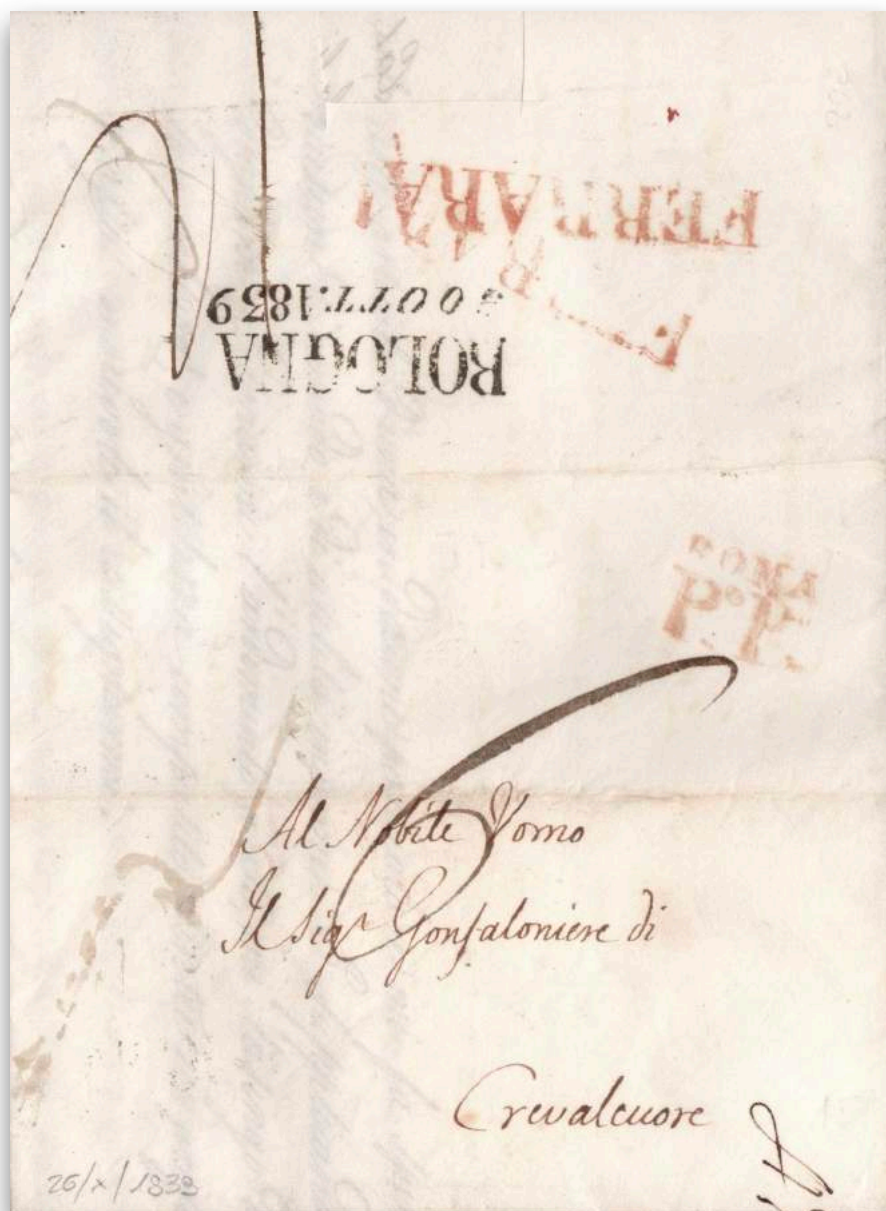 FERRARA
BOLOGNA
OTT. 1839
ROMA
P. P.
Al Nobile Uomo
Il Sigr Gonfaloniere di
Crevalcuore
26/X/1839